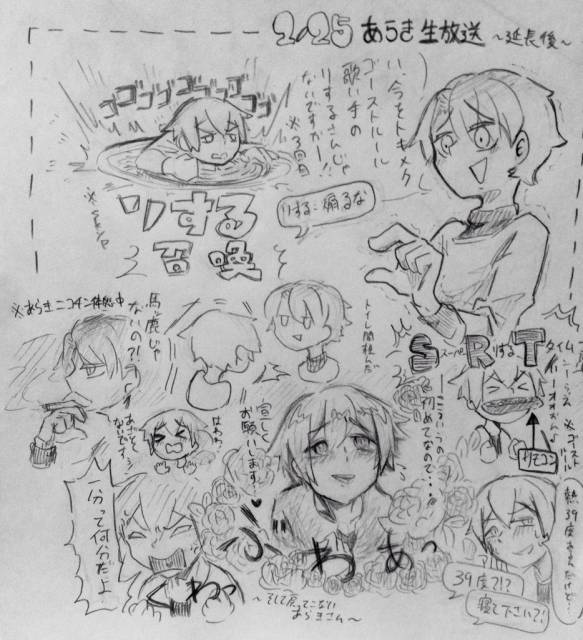 2/25 あらき生放送 ～延長後～
い、今をトキメク
ゴーストルール
歌い手の
りするさんじゃ
ないですかー!!
※3回目
ゴゴゴゴゴゴゴゴ
りする
召喚
りする:煽るな
※あらきニコチン摂取中
馬鹿じゃ
ないの?!
トイレ間に合った
SRT
スーパーりするタイム
リモコン
こういうの
初めてなので・・・
宜しく
お願いします…♥
はわわ
一分って何分だよ
くわっ
ふわぁっ
～そして戻ってこない
あらきさん～
熱39度あるんだけど…
39度?!?
寝て下さい?!